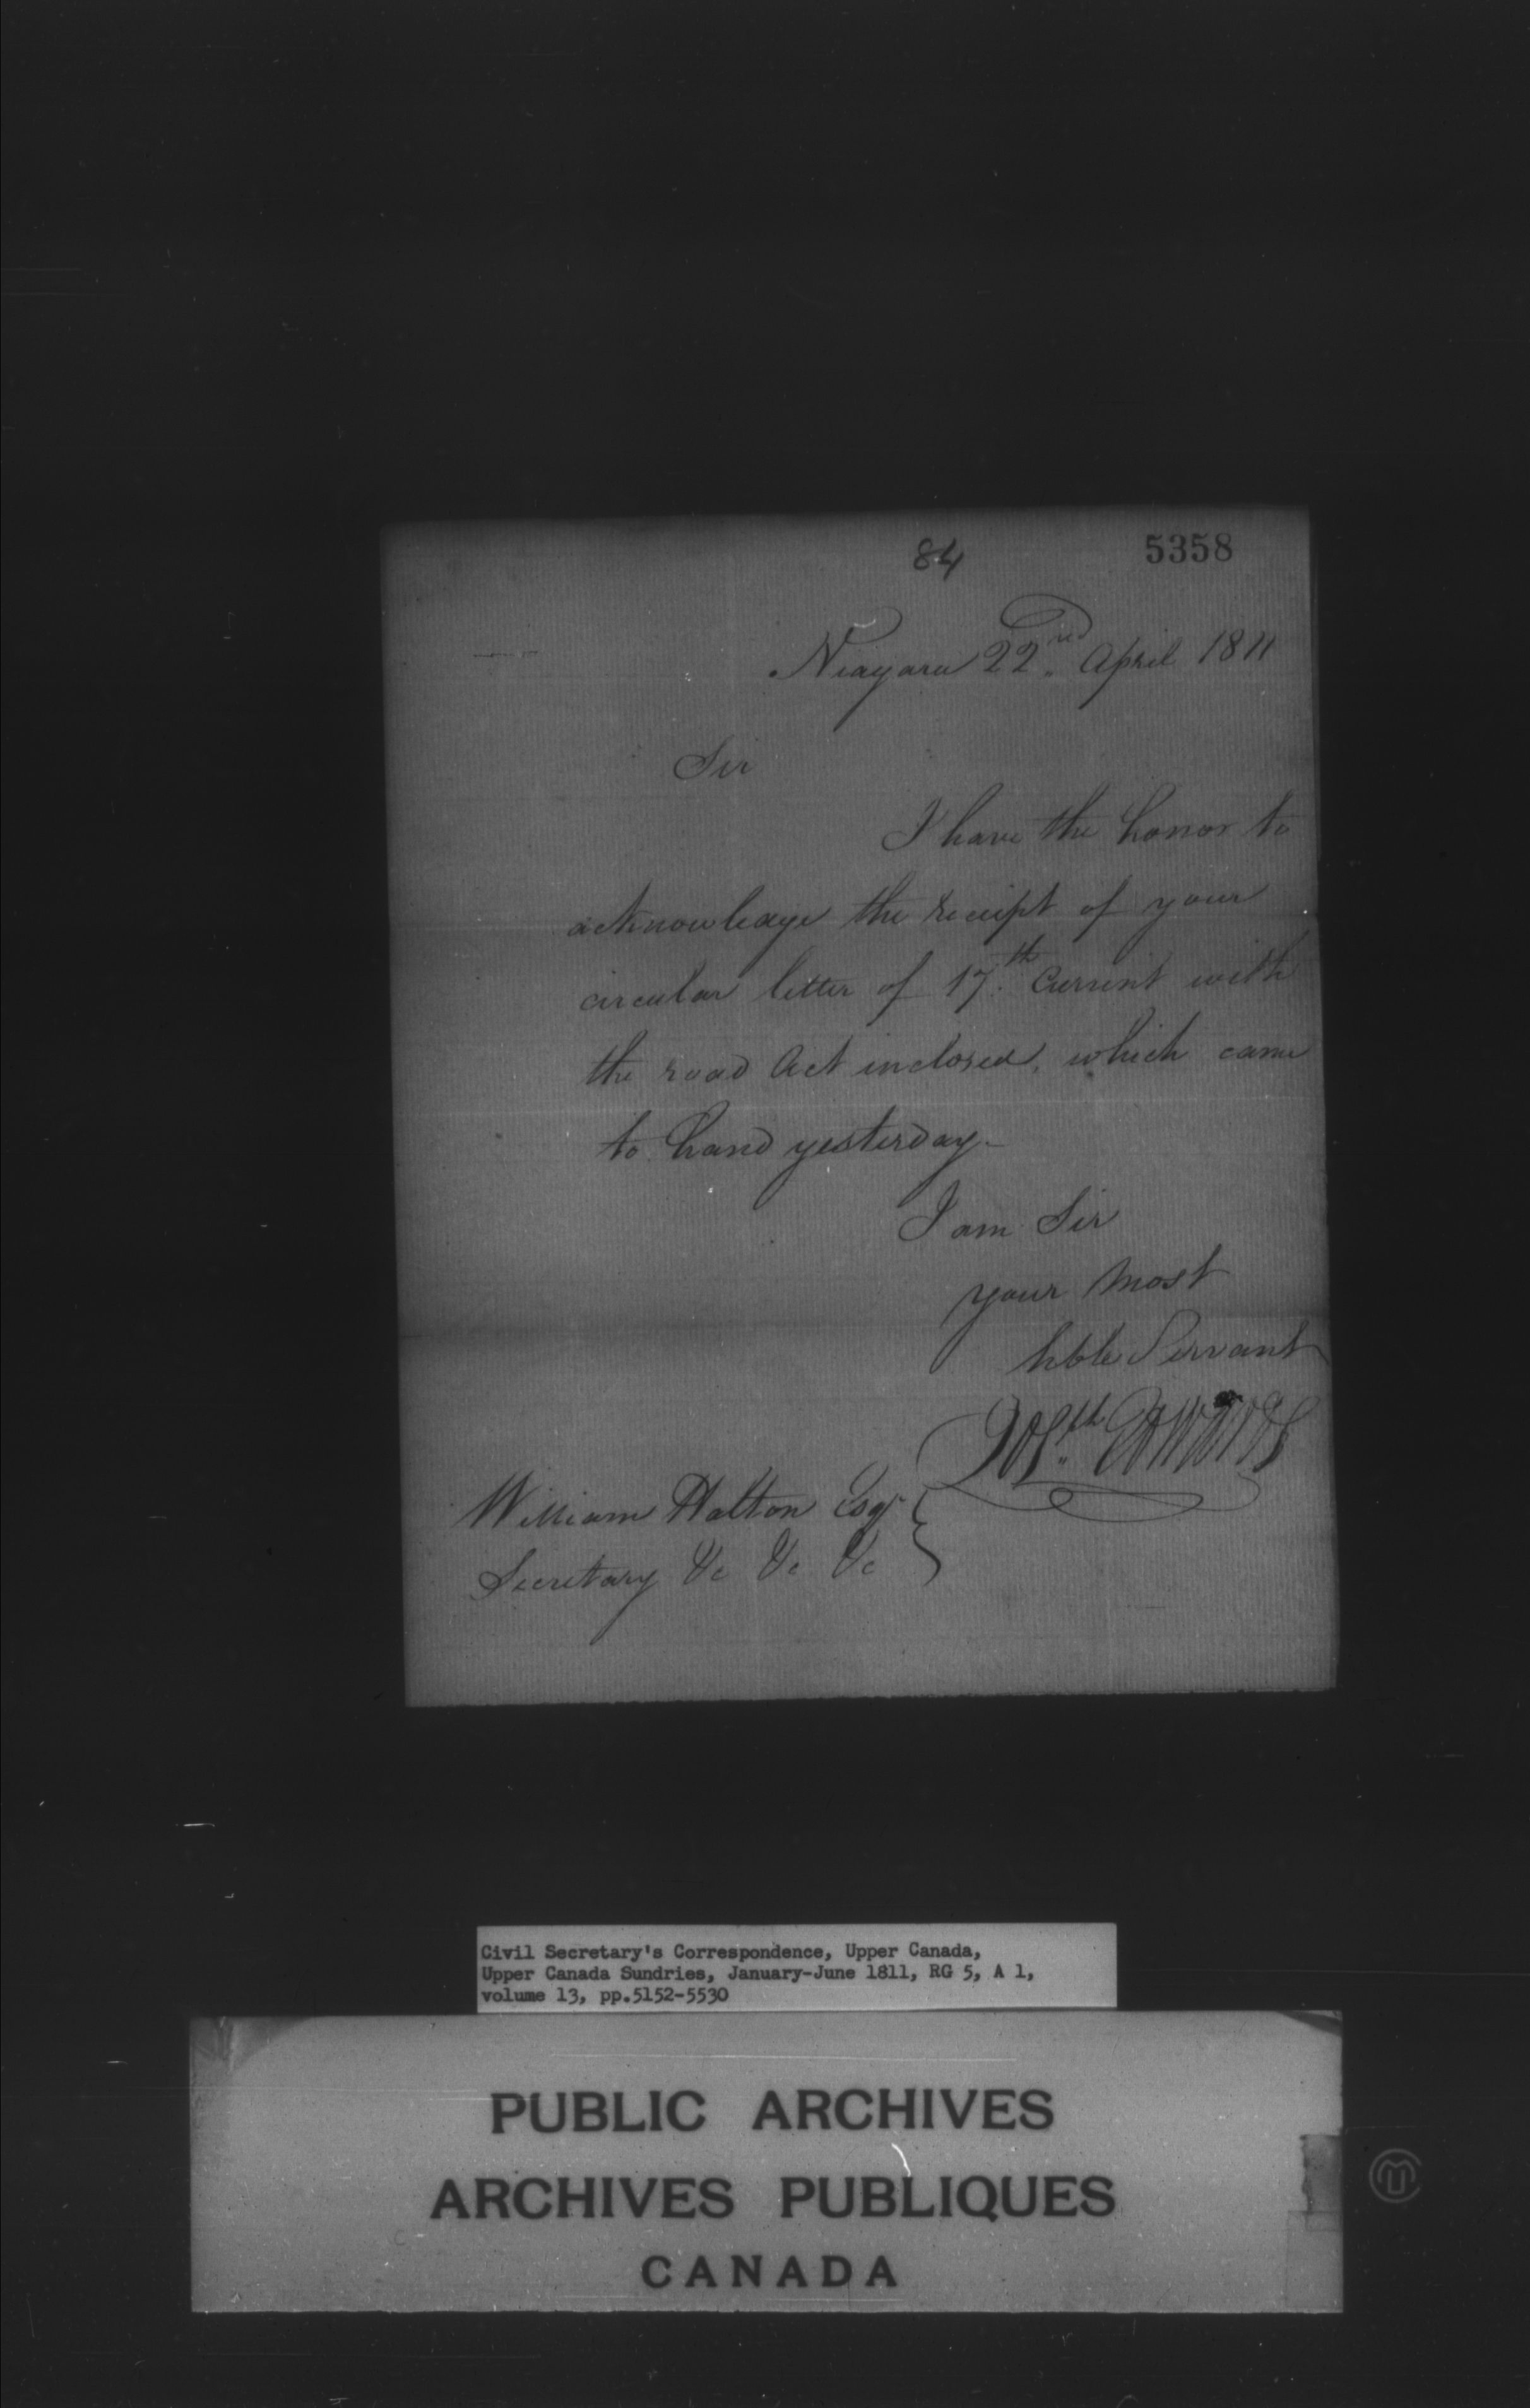 84
5358
Niagara 22nd. April 1811
Sir
I have the honor to
acknowledge the receipt of your
circular letter of 17th. Current with
the road Act inclosed, which came
to hand yesterday.
I am Sir
your Most
hble Servant
Josth. Edwards
William Halton Esqr
Secretary &c &c &c
Civil Secretary's Correspondence, Upper Canada,
Upper Canada Sundries, January-June 1811, RG 5, A 1,
volume 13, pp.5152-5530
PUBLIC ARCHIVES
ARCHIVES PUBLIQUES
CANADA